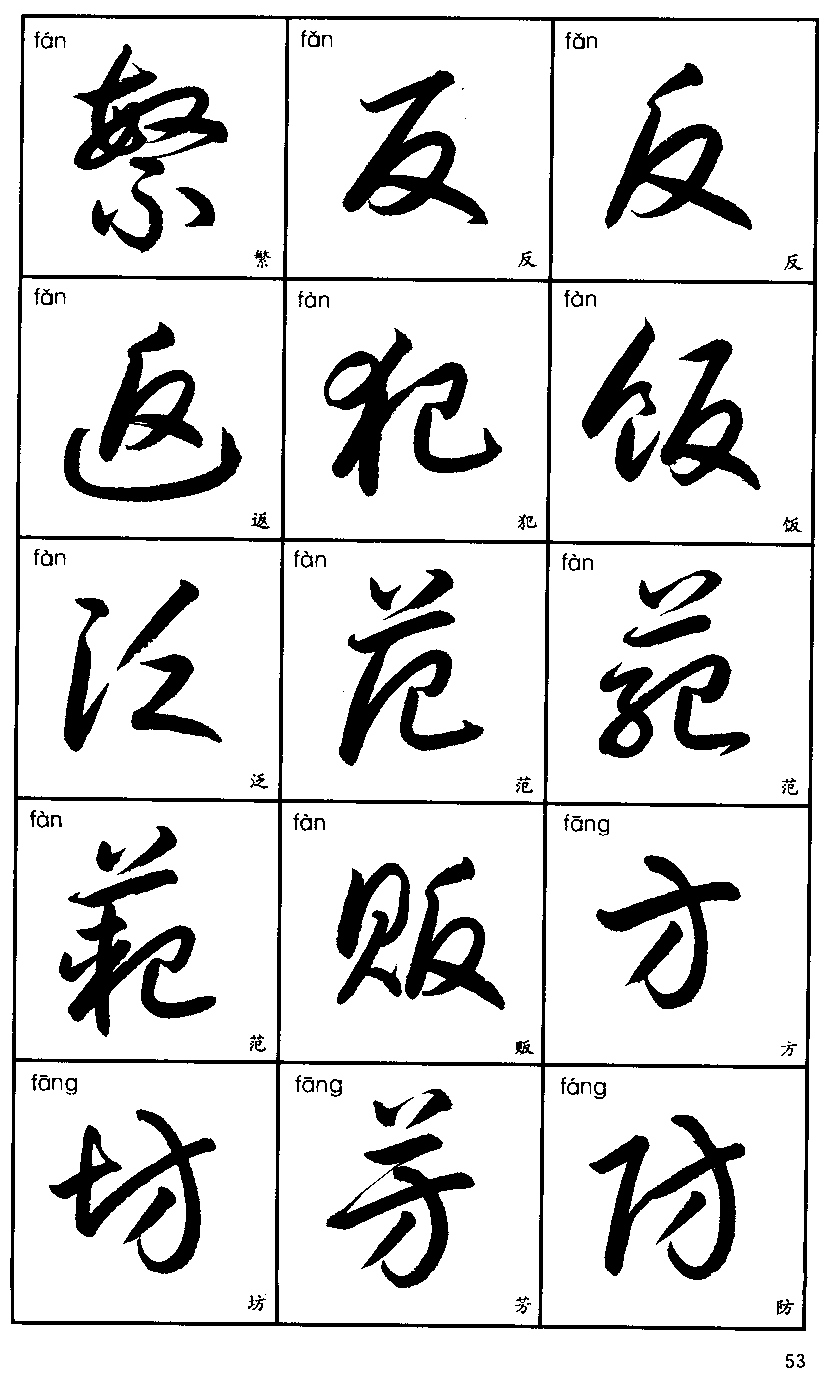 fán fǎn fǎn
繁 反 反
繁 反 反
fǎn fàn fàn
返 犯 饭
返 犯 饭
fàn fàn fàn
泛 范 范
泛 范 范
fàn fàn fāng
范 贩 方
范 贩 方
fāng fāng fáng
坊 芳 防
坊 芳 防
53